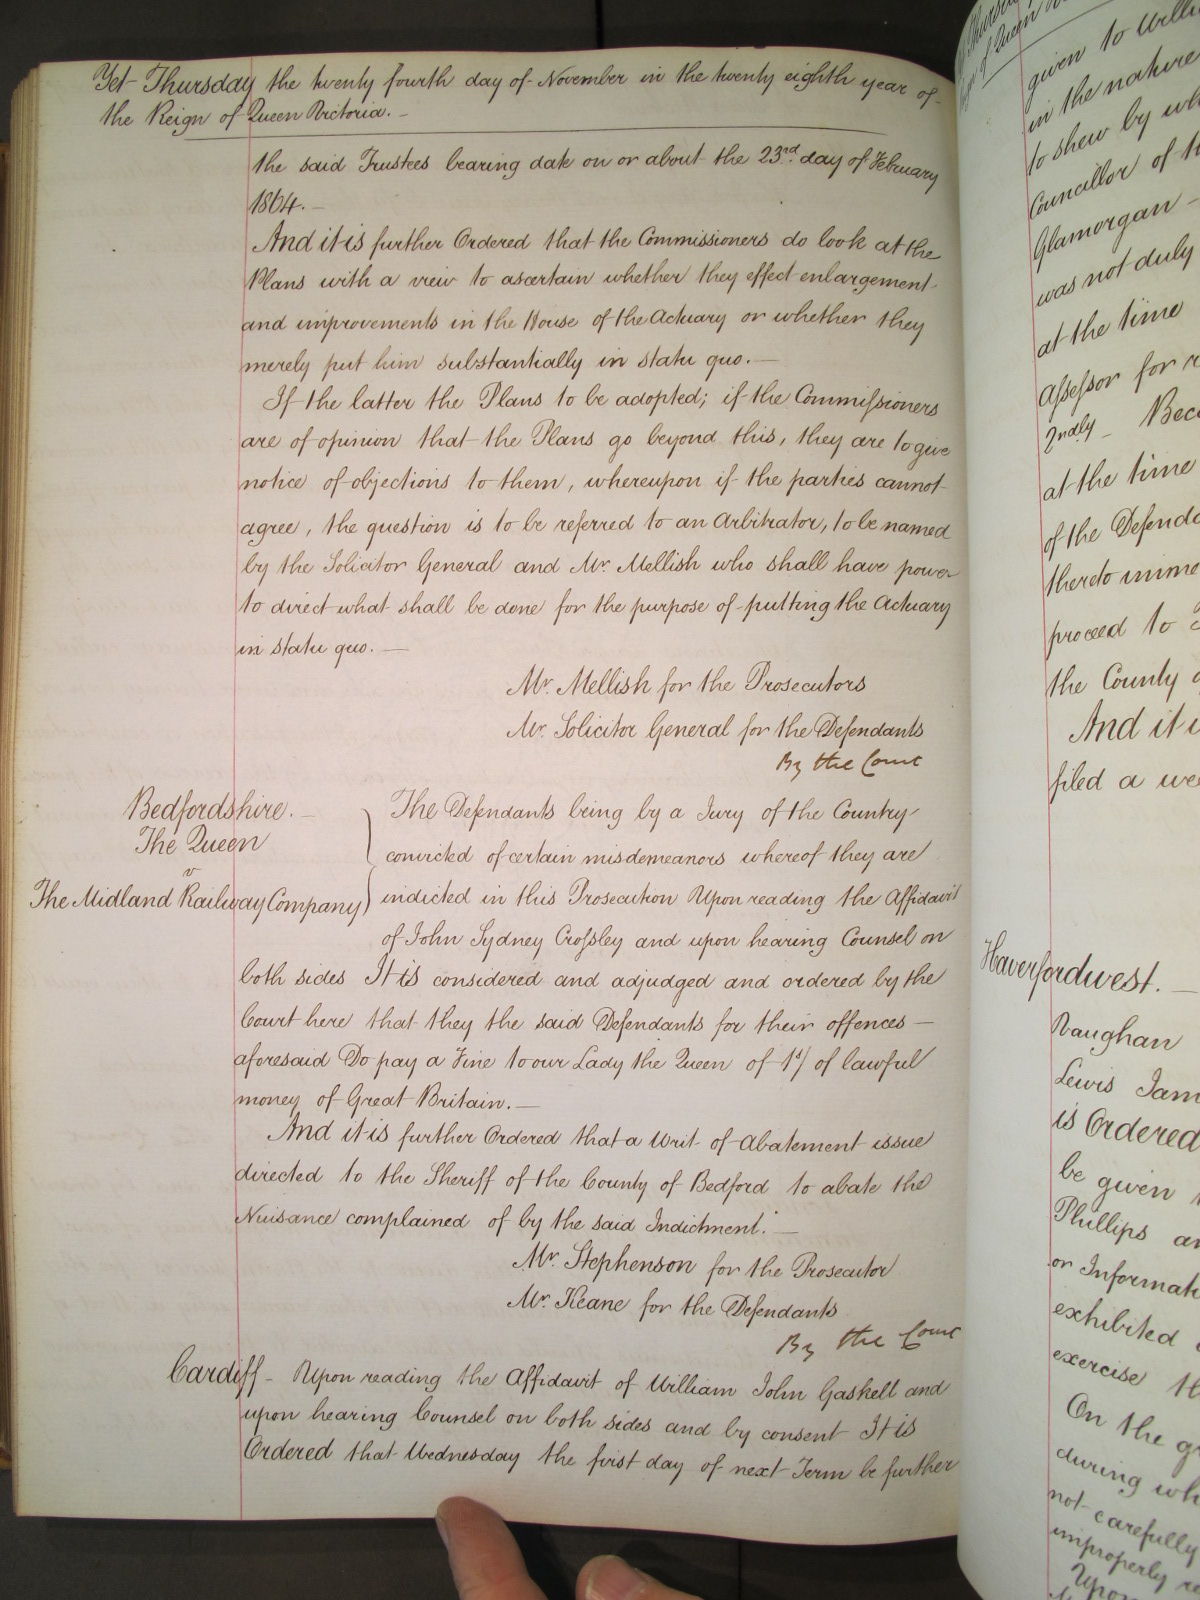 Yet Thursday the twenty fourth day of November in the twenty eighth year of
the Reign of Queen Victoria. —
the said Trustees bearing date on or about the 23rd. day of February
1864. —
And it is further Ordered that the Commissioners do look at the
Plans with a view to ascertain whether they effect enlargement
and improvements in the House of the Actuary or whether they
merely put him substantially in statu quo. —
If the latter the Plans to be adopted; if the Commissioners
are of opinion that the Plans go beyond this, they are to give
notice of objections to them, whereupon if the parties cannot
agree, the question is to be referred to an Arbitrator, to be named
by the Solicitor General and Mr. Mellish who shall have power
to direct what shall be done for the purpose of putting the Actuary
in statu quo. —
Mr. Mellish for the Prosecutors
Mr. Solicitor General for the Defendants
By the Court
Bedfordshire. —
The Queen
v
The Midland Railway Company
The Defendants being by a Jury of the Country
convicted of certain misdemeanors whereof they are
indicted in this Prosecution Upon reading the Affidavit
of John Sydney Crossley and upon hearing Counsel on
both sides It is considered and adjudged and ordered by the
Court here that they the said Defendants for their offences —
aforesaid Do pay a Fine to our Lady the Queen of 1s/ of lawful
money of Great Britain. —
And it is further Ordered that a Writ of Abatement issue
directed to the Sheriff of the County of Bedford to abate the
Nuisance complained of by the said Indictment. —
Mr. Stephenson for the Prosecutor
Mr. Keane for the Defendants
By the Court
Cardiff — Upon reading the Affidavit of William John Gaskell and
upon hearing Counsel on both sides and by consent It is
Ordered that Wednesday the first day of next Term be further
given to
in the nature
to shew by
Councillor of
Glamorgan —
was not duly
at the time
Assessor for
2ndly —
at the time
of the
thereto
proceed to
the County
And it
filed a
Haverfordwest. —
Vaughan
Lewis
is Ordered
be given
Phillips
or
exhibited
exercise
On the
during
not carefully
improperly
Upon